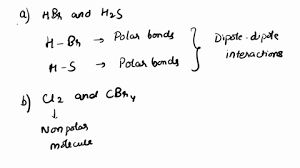 a) HBr and H2S
H-Br → Polar bonds
H-S → Polar bonds
Dipole-dipole
interactions
b) Cl2 and CBr4
↓
Nonpolar
molecule